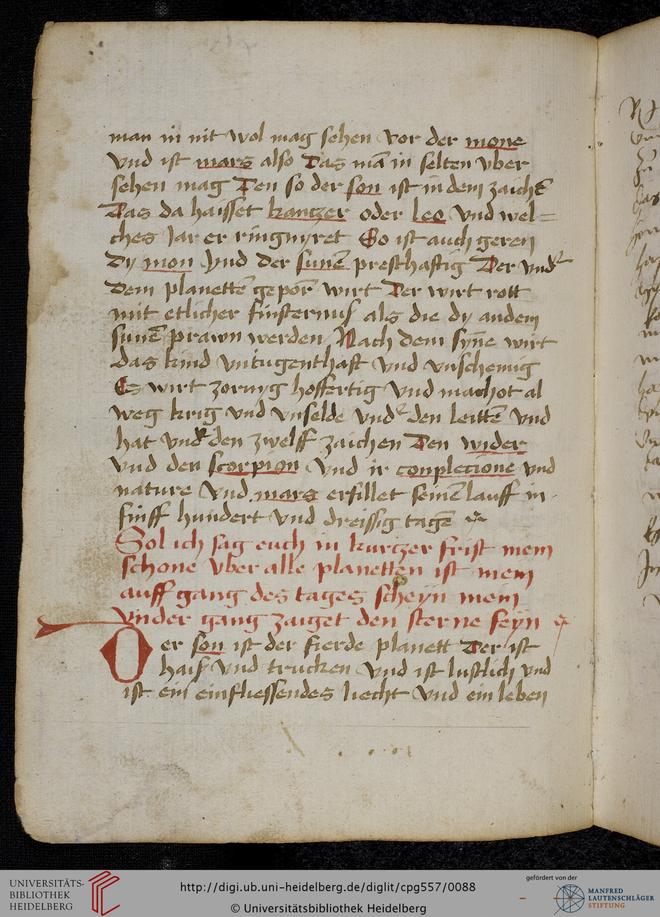 man in nit wol mag sehen vor der mone
vnd ist mars also Das mā in selten vber
sehen mag Den so der son ist in dem zaichē
Das da haisset kantzer oder leo vnd wel=
ches Jar er ringnyret So ist auch geren
dy mon vnd der sunē presthafftig Der vnd
dem planettē gepor wirt Der wirt rott
mit etlicher finsternuß als die dy andem
sunē prawn werden Nach dem syne wirt
das kind vntugenthaft vnd vnschemig
Es wirt zornyg hoffertig vnd machot al
weg krig vnd vnselde vnd den leittē vnd
hat vnd den zwelff zaichen Den wider
vnd den scorpion vnd ir conplecione vnd
nature vnd mars erfillet seinē lauff in
finff hundert vnd dreissig tagē
Sol ich sag euch in kurtzer frist mem
schone vber alle planetten ist mem
auff gang des tages scheyn mein
vnder gang zaiget den sterne feyn
Der son ist der fierde planett Der ist
haiß vnd trucken vnd ist lustlich vnd
ist ein einfliessendes liecht vnd ein leben
UNIVERSITÄTS-
BIBLIOTHEK
HEIDELBERG
http://digi.ub.uni-heidelberg.de/diglit/cpg557/0088
© Universitätsbibliothek Heidelberg
gefördert von der
MANFRED
LAUTENSCHLÄGER
STIFTUNG